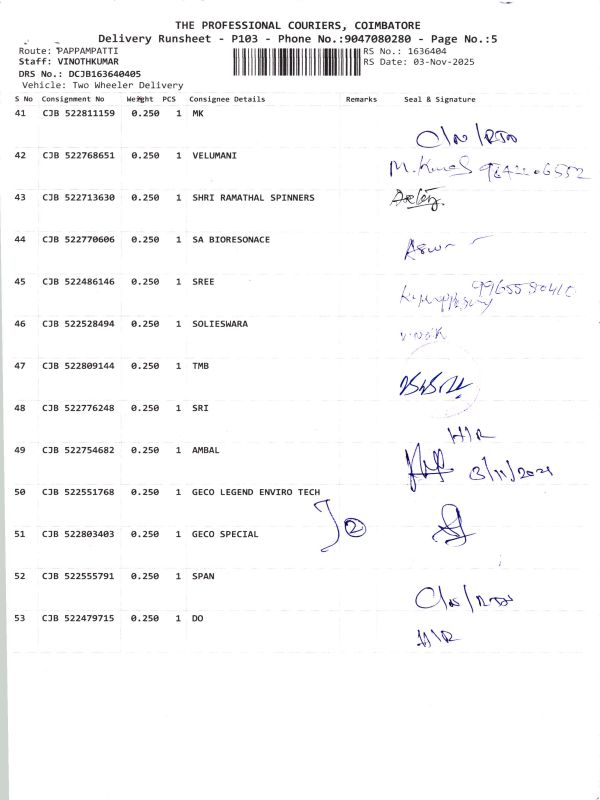 THE PROFESSIONAL COURIERS, COIMBATORE
Delivery Runsheet - P103 - Phone No.:9047080280 - Page No.:5
Route: PAPPAMPATTI RS No.: 1636404
Staff: VINOTHKUMAR RS Date: 03-Nov-2025
DRS No.: DCJB163640405
Vehicle: Two Wheeler Delivery
S No Consignment No Weight PCS Consignee Details Remarks Seal & Signature
41 CJB 522811159 0.250 1 MK
C/N/RTO
42 CJB 522768651 0.250 1 VELUMANI
43 CJB 522713630 0.250 1 SHRI RAMATHAL SPINNERS
44 CJB 522770606 0.250 1 SA BIORESONACE
45 CJB 522486146 0.250 1 SREE
46 CJB 522528494 0.250 1 SOLIESWARA
47 CJB 522809144 0.250 1 TMB
48 CJB 522776248 0.250 1 SRI
H/R
49 CJB 522754682 0.250 1 AMBAL
50 CJB 522551768 0.250 1 GECO LEGEND ENVIRO TECH
2
51 CJB 522803403 0.250 1 GECO SPECIAL
52 CJB 522555791 0.250 1 SPAN
C/N/RTO
53 CJB 522479715 0.250 1 DO
H/R